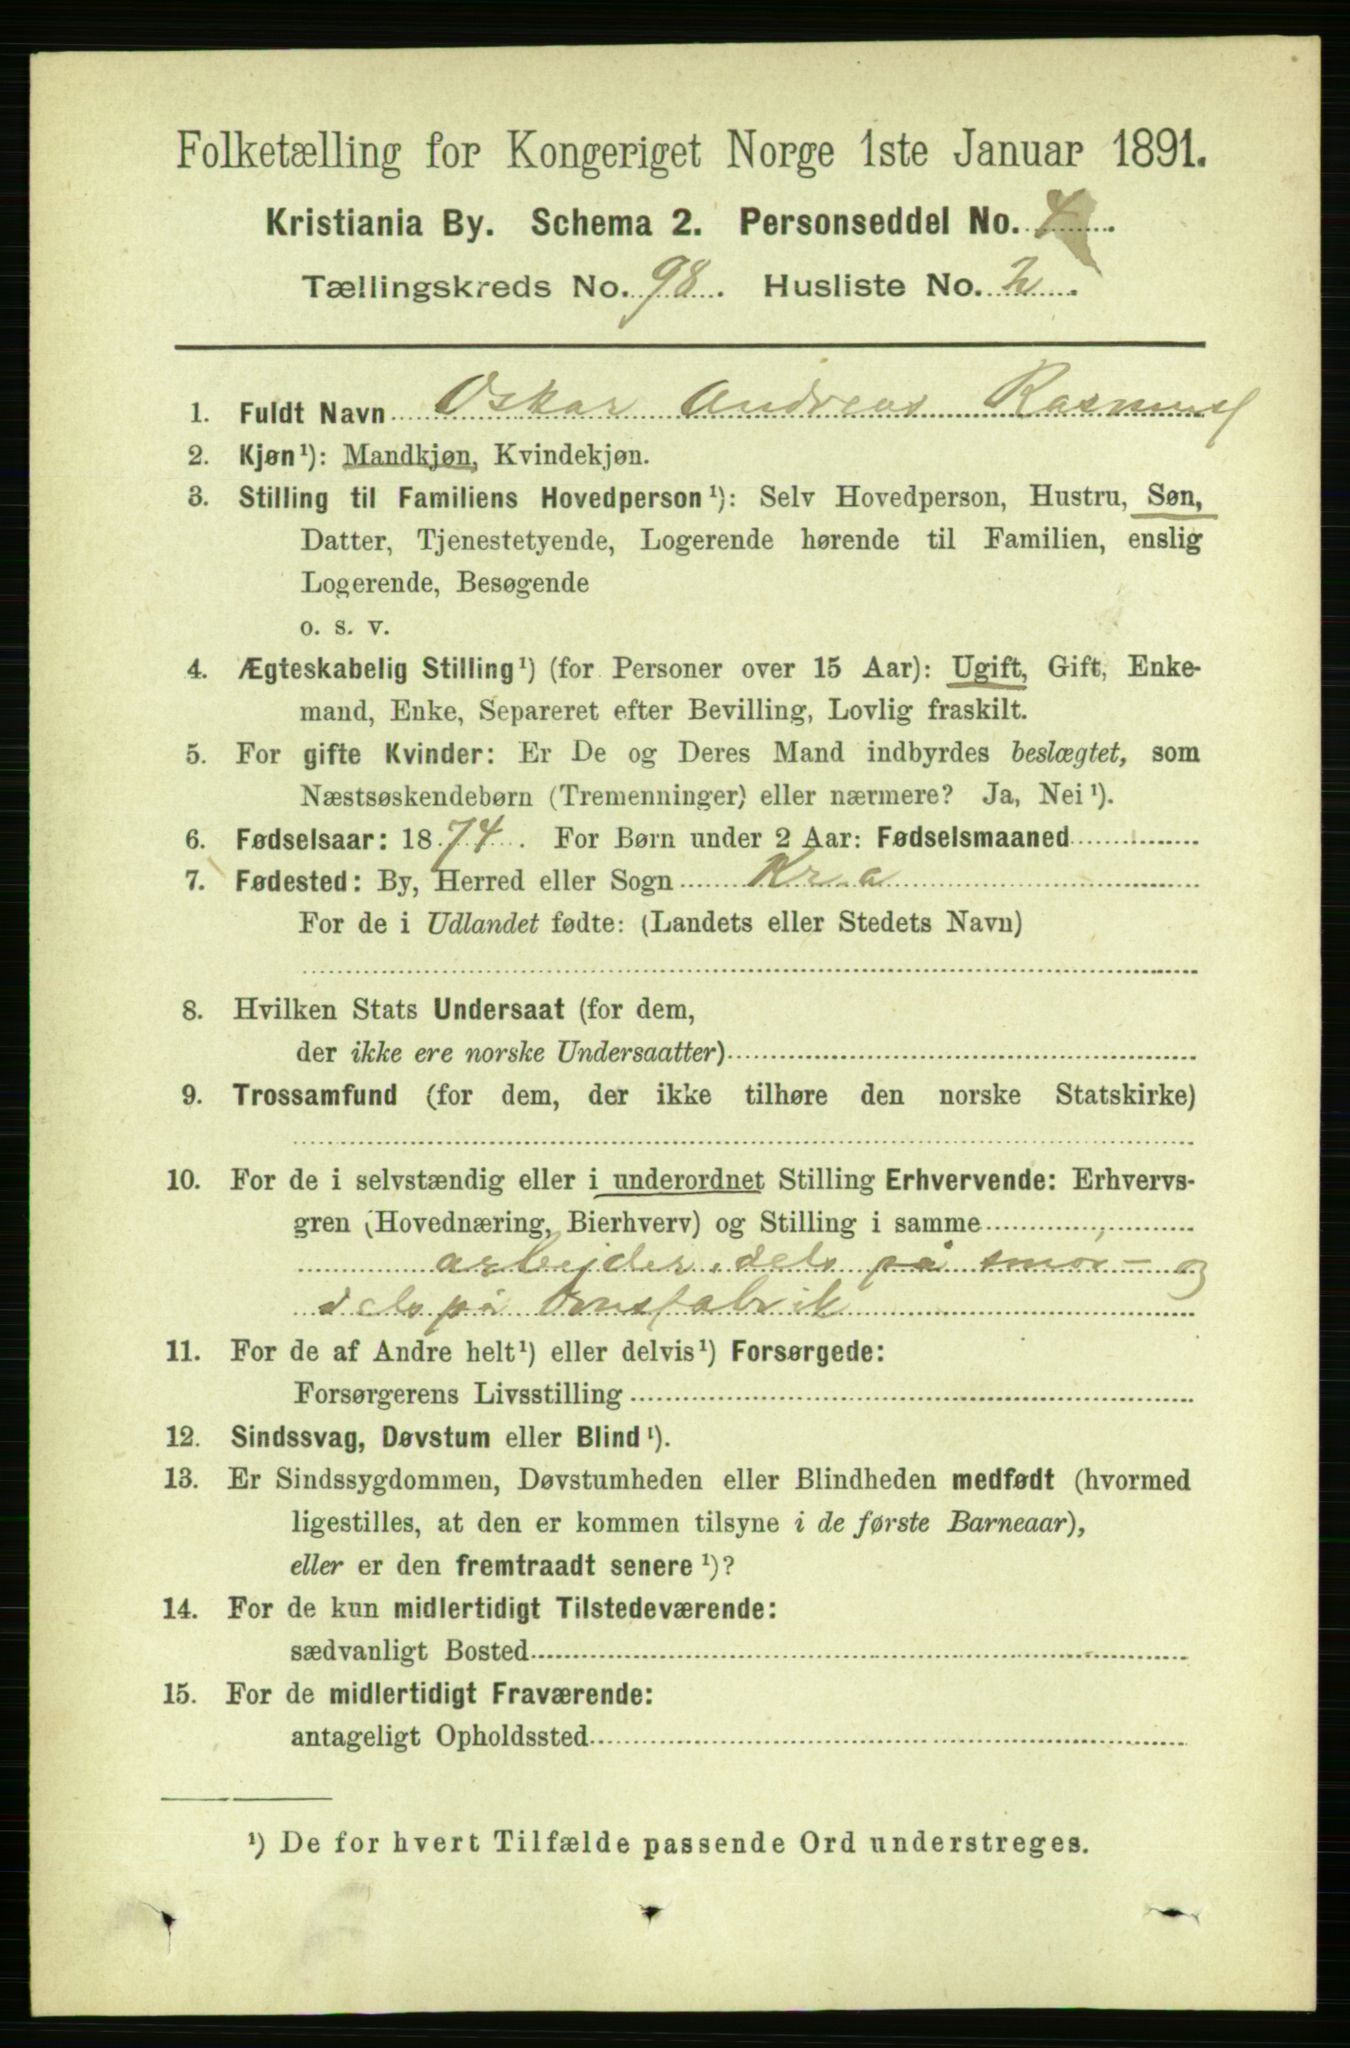 Folketælling for Kongeriget Norge 1ste Januar 1891.
Kristiania By. Schema 2. Personseddel No. 4.
Tællingskreds No. 98. Husliste No. 2.
1. Fuldt Navn Oskar Andreas Rasmus
2. Kjøn¹): Mandkjøn, Kvindekjøn.
3. Stilling til Familiens Hovedperson¹): Selv Hovedperson, Hustru, Søn,
Datter, Tjenestetyende, Logerende hørende til Familien, enslig
Logerende, Besøgende
o. s. v.
4. Ægteskabelig Stilling¹) (for Personer over 15 Aar): Ugift, Gift, Enke-
mand, Enke, Separeret efter Bevilling, Lovlig fraskilt.
5. For gifte Kvinder: Er De og Deres Mand indbyrdes beslægtet, som
Næstsøskendebørn (Tremenninger) eller nærmere? Ja, Nei¹).
6. Fødselsaar: 1874. For Børn under 2 Aar: Fødselsmaaned
7. Fødested: By, Herred eller Sogn Kr.a
For de i Udlandet fødte: (Landets eller Stedets Navn)
8. Hvilken Stats Undersaat (for dem,
der ikke ere norske Undersaatter)
9. Trossamfund (for dem, der ikke tilhøre den norske Statskirke)
10. For de i selvstændig eller i underordnet Stilling Erhvervende: Erhvervs-
gren (Hovednæring, Bierhverv) og Stilling i samme
arbejder, dels på smør- og
dels på
11. For de af Andre helt¹) eller delvis¹) Forsørgede:
Forsørgerens Livsstilling
12. Sindssvag, Døvstum eller Blind¹).
13. Er Sindssygdommen, Døvstumheden eller Blindheden medfødt (hvormed
ligestilles, at den er kommen tilsyne i de første Barneaar),
eller er den fremtraadt senere¹)?
14. For de kun midlertidigt Tilstedeværende:
sædvanligt Bosted
15. For de midlertidigt Fraværende:
antageligt Opholdssted
¹) De for hvert Tilfælde passende Ord understreges.